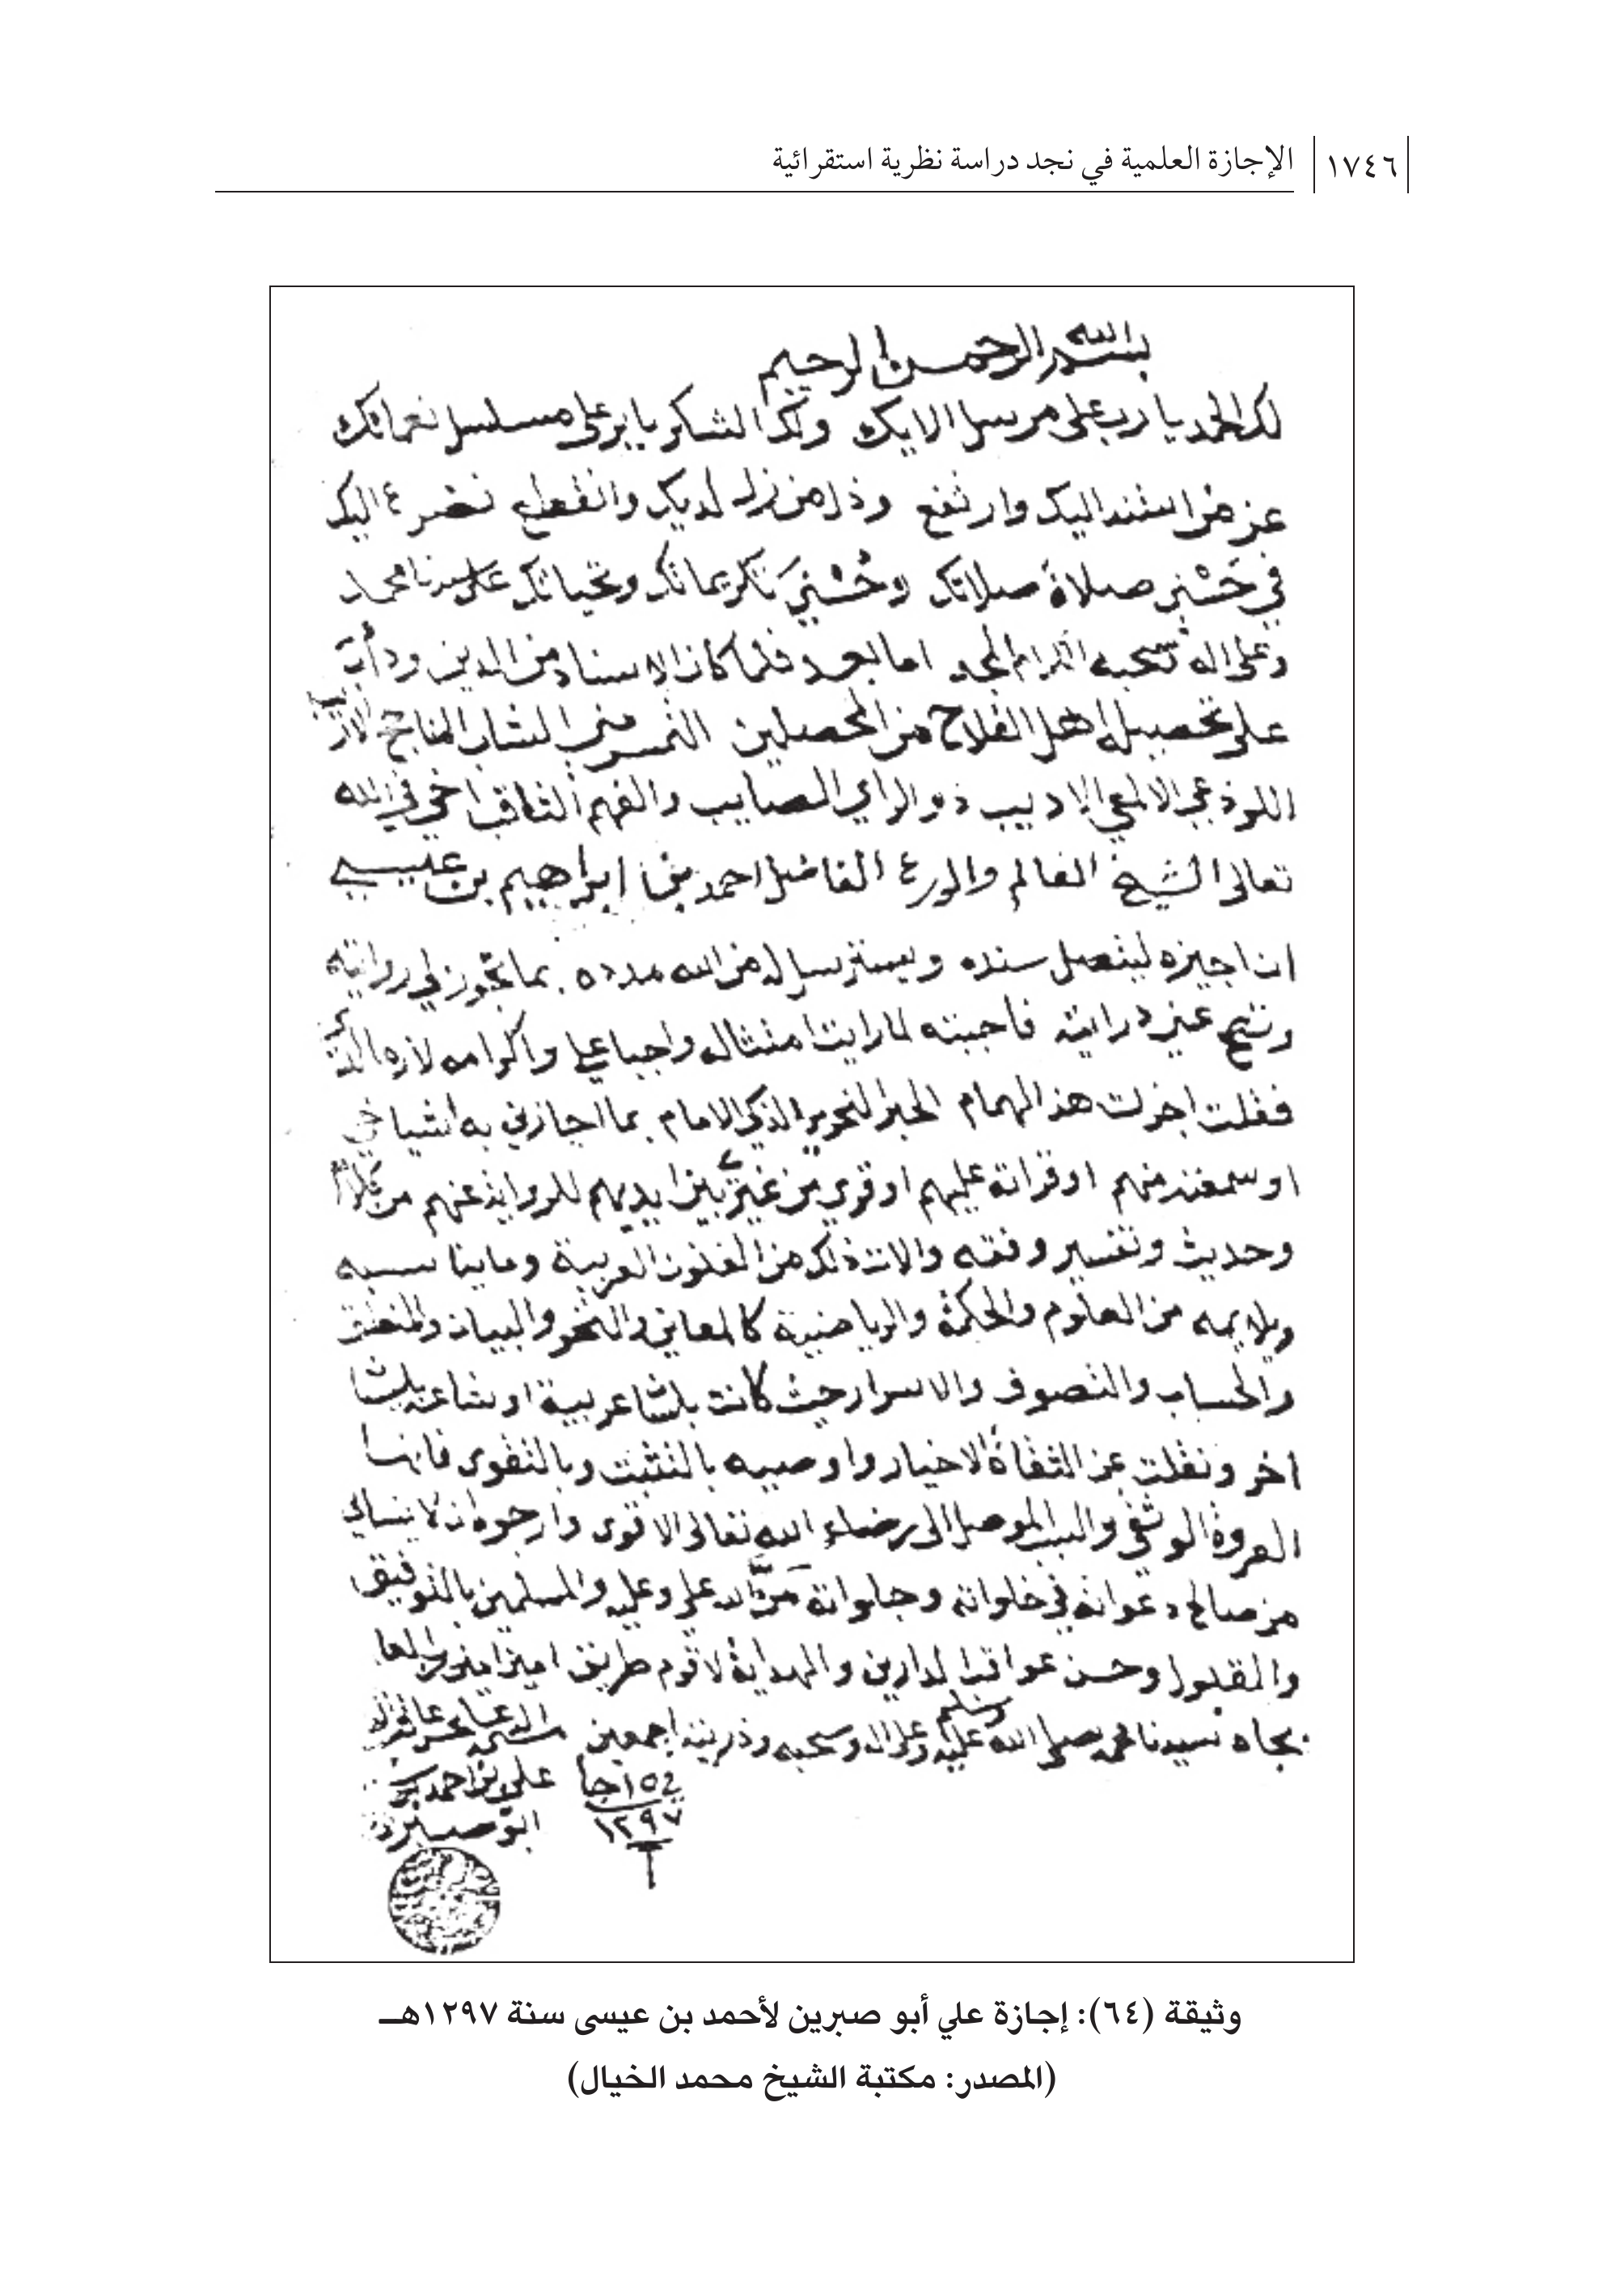 ١٧٤٦ الإجازة العلمية في نجد دراسة نظرية استقرائية
بسم الله الرحمن الرحيم
لك الحمد يا رب على مرسل الايك ولك الشكر يا بر على مسلسل نعمائك
عز من استند اليك وارتفع وذل من نزل لديك وانقطع نضرع اليك
في حسن صلاة صلاتك وحسنى تكريماتك وتحياتك على سيدنا محمد
وعلى اله وصحبه الكرام اما بعد فلما كان الاسناد من الدين ودأب
على تحصيله اهل الفلاح من المحصلين التمس مني الشاب الناجح
اللوذعي الالمعي الاديب ذو الراي الصايب والفهم الثاقب اخي في الله
تعالى الشيخ العالم والورع الفاضل احمد بن ابراهيم بن عيسى
ان اجيزه ليتصل سنده ويسترسل له من الله مدده بما تجوز لي روايته
وتصح عني درايته فاجبته لما رايت امتثاله واجبا علي واكرامه لازم
فقلت اجزت هذ الهمام الحبر النحرير الذكي الامام بما اجازني به اشياخي
او سمعته منهم او قراته عليهم او قري من غيري بين ايديهم للرواية عنهم من
وحديث وتفسير وفقه والات ذلك من الفنون العربية وما يناسبه
ويلايمه من العلوم والحكمة والرياضية كالمعاني والنحو والبيان والمنطق
والحساب والتصوف والاسرار حيث كانت
اخر ونقلت عن الثقاة الاخيار واوصيه بالتثبت وبالتقوى فانها
العروة الوثقى والسبب الموصل الى رضاء الله تعالى الاقوى وارجوه ان لا ينساني
من صالح دعواته في خلواته وجلواته من الله علي وعليه والمسلمين بالتوفيق
والقبول وحسن عواقب الدارين والهداية لاقوم طريق امين امين
بجاه سيدنا محمد صلى الله عليه وسلم وعلى اله وصحبه وذريته اجمعين
في ١٥ جا
١٢٩٧
علي بن احمد
ابو صبرين
وثيقة (٦٤): إجازة علي أبو صبرين لأحمد بن عيسى سنة ١٢٩٧هـ
(المصدر: مكتبة الشيخ محمد الخيال)